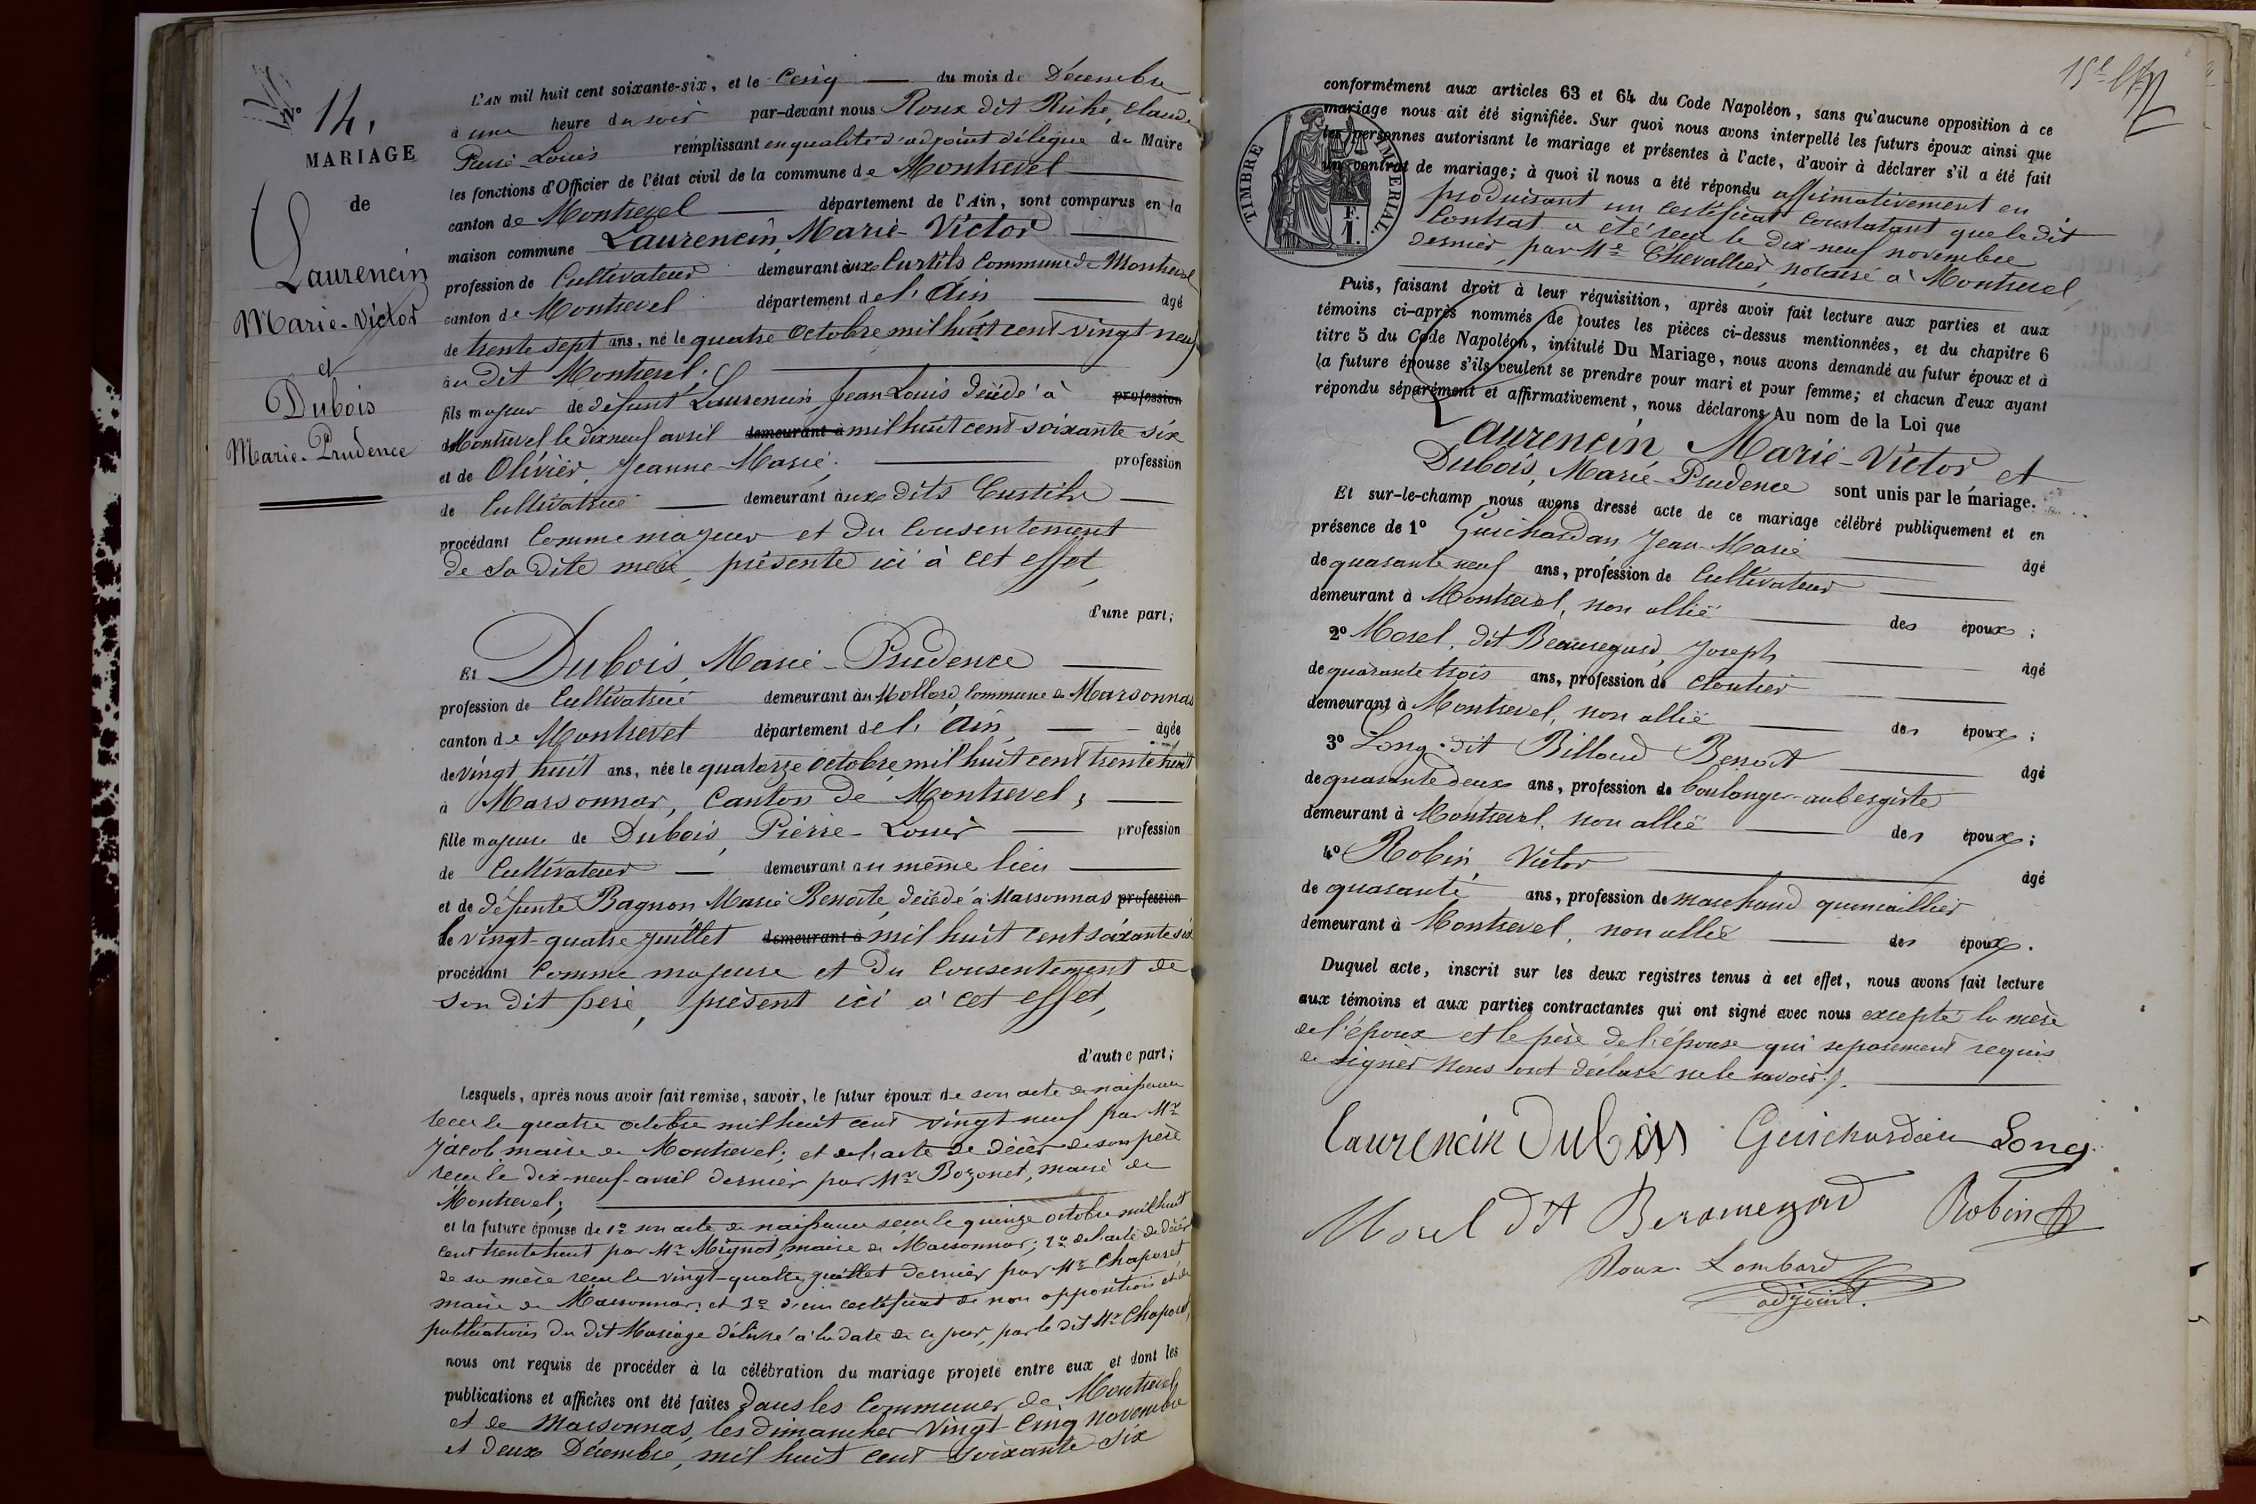 N° 14.
MARIAGE
de
Laurencin
Marie-Victor
et
Dubois
Marie-Prudence
L'AN mil huit cent soixante-six, et le Cinq du mois de Décembre
à une heure du soir par-devant nous Roux dit Riche, Claude
Pierre-Louis remplissant en qualité d'adjoint délégué du Maire
les fonctions d'Officier de l'état civil de la commune de Montrevel
canton de Montrevel département de l'Ain, sont comparus en la
maison commune Laurencin, Marie-Victor
profession de Cultivateur demeurant aux Curtils Commune de Montrevel
canton de Montrevel département de l'Ain âgé
de trente sept ans, né le quatre Octobre mil huit cent vingt neuf
au dit Montrevel;
fils majeur de defunt Laurencin, Jean Louis décédé à profession
de Montrevel le dix neuf avril demeurant à mil huit cent soixante six
et de Olivier, Jeanne-Marie. profession
de Cultivatrice demeurant aux dits Curtils
procédant Comme majeur et du Consentement
de sa dite mère, présente ici à cet effet,
d'une part;
Et Dubois, Marie-Prudence
profession de Cultivatrice demeurant au Mollard, Commune de Marsonnas
canton de Montrevel département de l'Ain, âgée
de vingt huit ans, née le quatorze octobre mil huit cent trente huit
à Marsonnas, Canton de Montrevel;
fille majeure de Dubois, Pierre-Louis profession
de Cultivateur demeurant au même lieu
et de défunte Bagnon Marie Benoite, décédé à Marsonnas profession
le vingt-quatre juillet demeurant à mil huit cent soixante six
procédant Comme majeure et du Consentement de
son dit père, présent ici à cet effet,
d'autre part;
Lesquels, après nous avoir fait remise, savoir, le futur époux de son acte de naissance
reçu le quatre octobre mil huit cent vingt neuf par Mr
Jacob maire de Montrevel; et de l'acte de décès de son père
reçu le dix-neuf-avril dernier par Mr Bozonet, maire de
Montrevel;
et la future épouse de 1° son acte de naissance reçu le quinze octobre mil huit
cent trente huit par Mr Mignot, maire de Marsonnas; 2° de l'acte de décès
de sa mère reçu le vingt-quatre juillet dernier par Mr Chaposet
maire de Marsonnas; et 3° d'un certificat de non opposition et de
publications du dit Mariage délivré à la date de ce jour, par le dit Mr Chaposet,
nous ont requis de procéder à la célébration du mariage projeté entre eux et dont les
publications et affiches ont été faites dans les Communes de Montrevel
et de Marsonnas, les dimanches vingt-cinq novembre
et deux Décembre, mil huit cent soixante six
conformément aux articles 63 et 64 du Code Napoléon, sans qu'aucune opposition à ce
mariage nous ait été signifiée. Sur quoi nous avons interpellé les futurs époux ainsi que
les personnes autorisant le mariage et présentes à l'acte, d'avoir à déclarer s'il a été fait
un contrat de mariage; à quoi il nous a été répondu affirmativement en
produisant un certificat constatant que le dit
Contrat a été reçu le dix-neuf novembre
dernier, par Me Chevallier, notaire à Montrevel,
TIMBRE IMPERIAL.
F.
1.
Puis, faisant droit à leur réquisition, après avoir fait lecture aux parties et aux
témoins ci-après nommés de toutes les pièces ci-dessus mentionnées, et du chapitre 6
titre 5 du Code Napoléon, intitulé Du Mariage, nous avons demandé au futur époux et à
la future épouse s'ils veulent se prendre pour mari et pour femme; et chacun d'eux ayant
répondu séparément et affirmativement, nous déclarons Au nom de la Loi que
Laurencin Marie-Victor et
Dubois, Marie-Prudence sont unis par le mariage.
Et sur-le-champ nous avons dressé acte de ce mariage célébré publiquement et en
présence de 1° Guichardan Jean-Marie âgé
de quarante neuf ans, profession de Cultivateur
demeurant à Montrevel, non allié des époux;
2° Morel, dit Beauregard, Joseph âgé
de quarante trois ans, profession de cloutier
demeurant à Montrevel, non allié des époux;
3° Long-dit Billoud Benoît âgé
de quarante deux ans, profession de boulanger-aubergiste
demeurant à Montrevel, non allié des époux;
4° Robin, Victor âgé
de quarante ans, profession de marchand quincaillier
demeurant à Montrevel, non allié des époux.
Duquel acte, inscrit sur les deux registres tenus à cet effet, nous avons fait lecture
aux témoins et aux parties contractantes qui ont signé avec nous excepté la mère
de l'époux et le père de l'épouse qui séparement requis
de signer nous ont déclaré ne le savoir.
Laurencin Dubois Guichardan Long
Morel Dit Beauregard Robin
Roux-Lombard
adjoint.